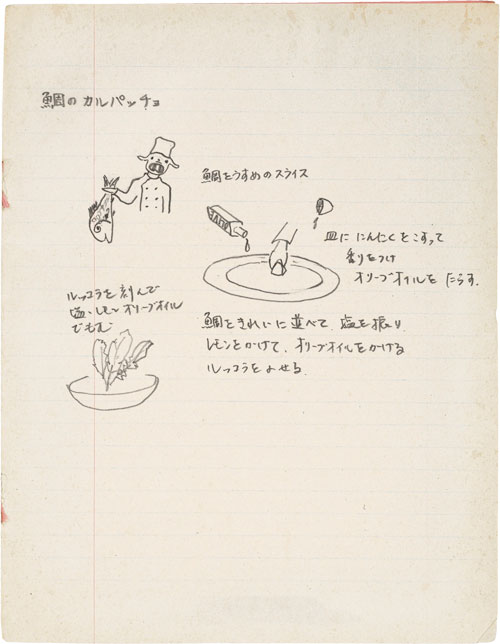 鯛のカルパッチョ
鯛をうすめのスライス
OLIVE
皿に にんにくをこすって
香りをつけ
オリーブオイルを たらす.
ルッコラを刻んで
塩・レモン オリーブオイル
でもむ
鯛をきれいに並べて 塩を振り
レモンをかけて、オリーブオイルをかける
ルッコラをよせる